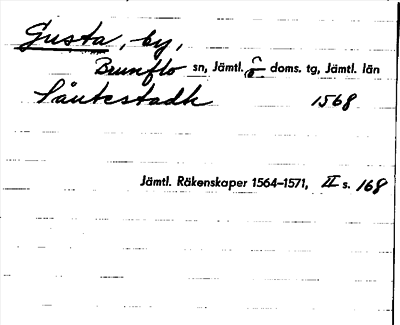 Gusta, by,
Brunflo sn, Jämtl. ö doms. tg, Jämtl. län
Såutestadh 1568
Jämtl. Räkenskaper 1564–1571, II s. 168